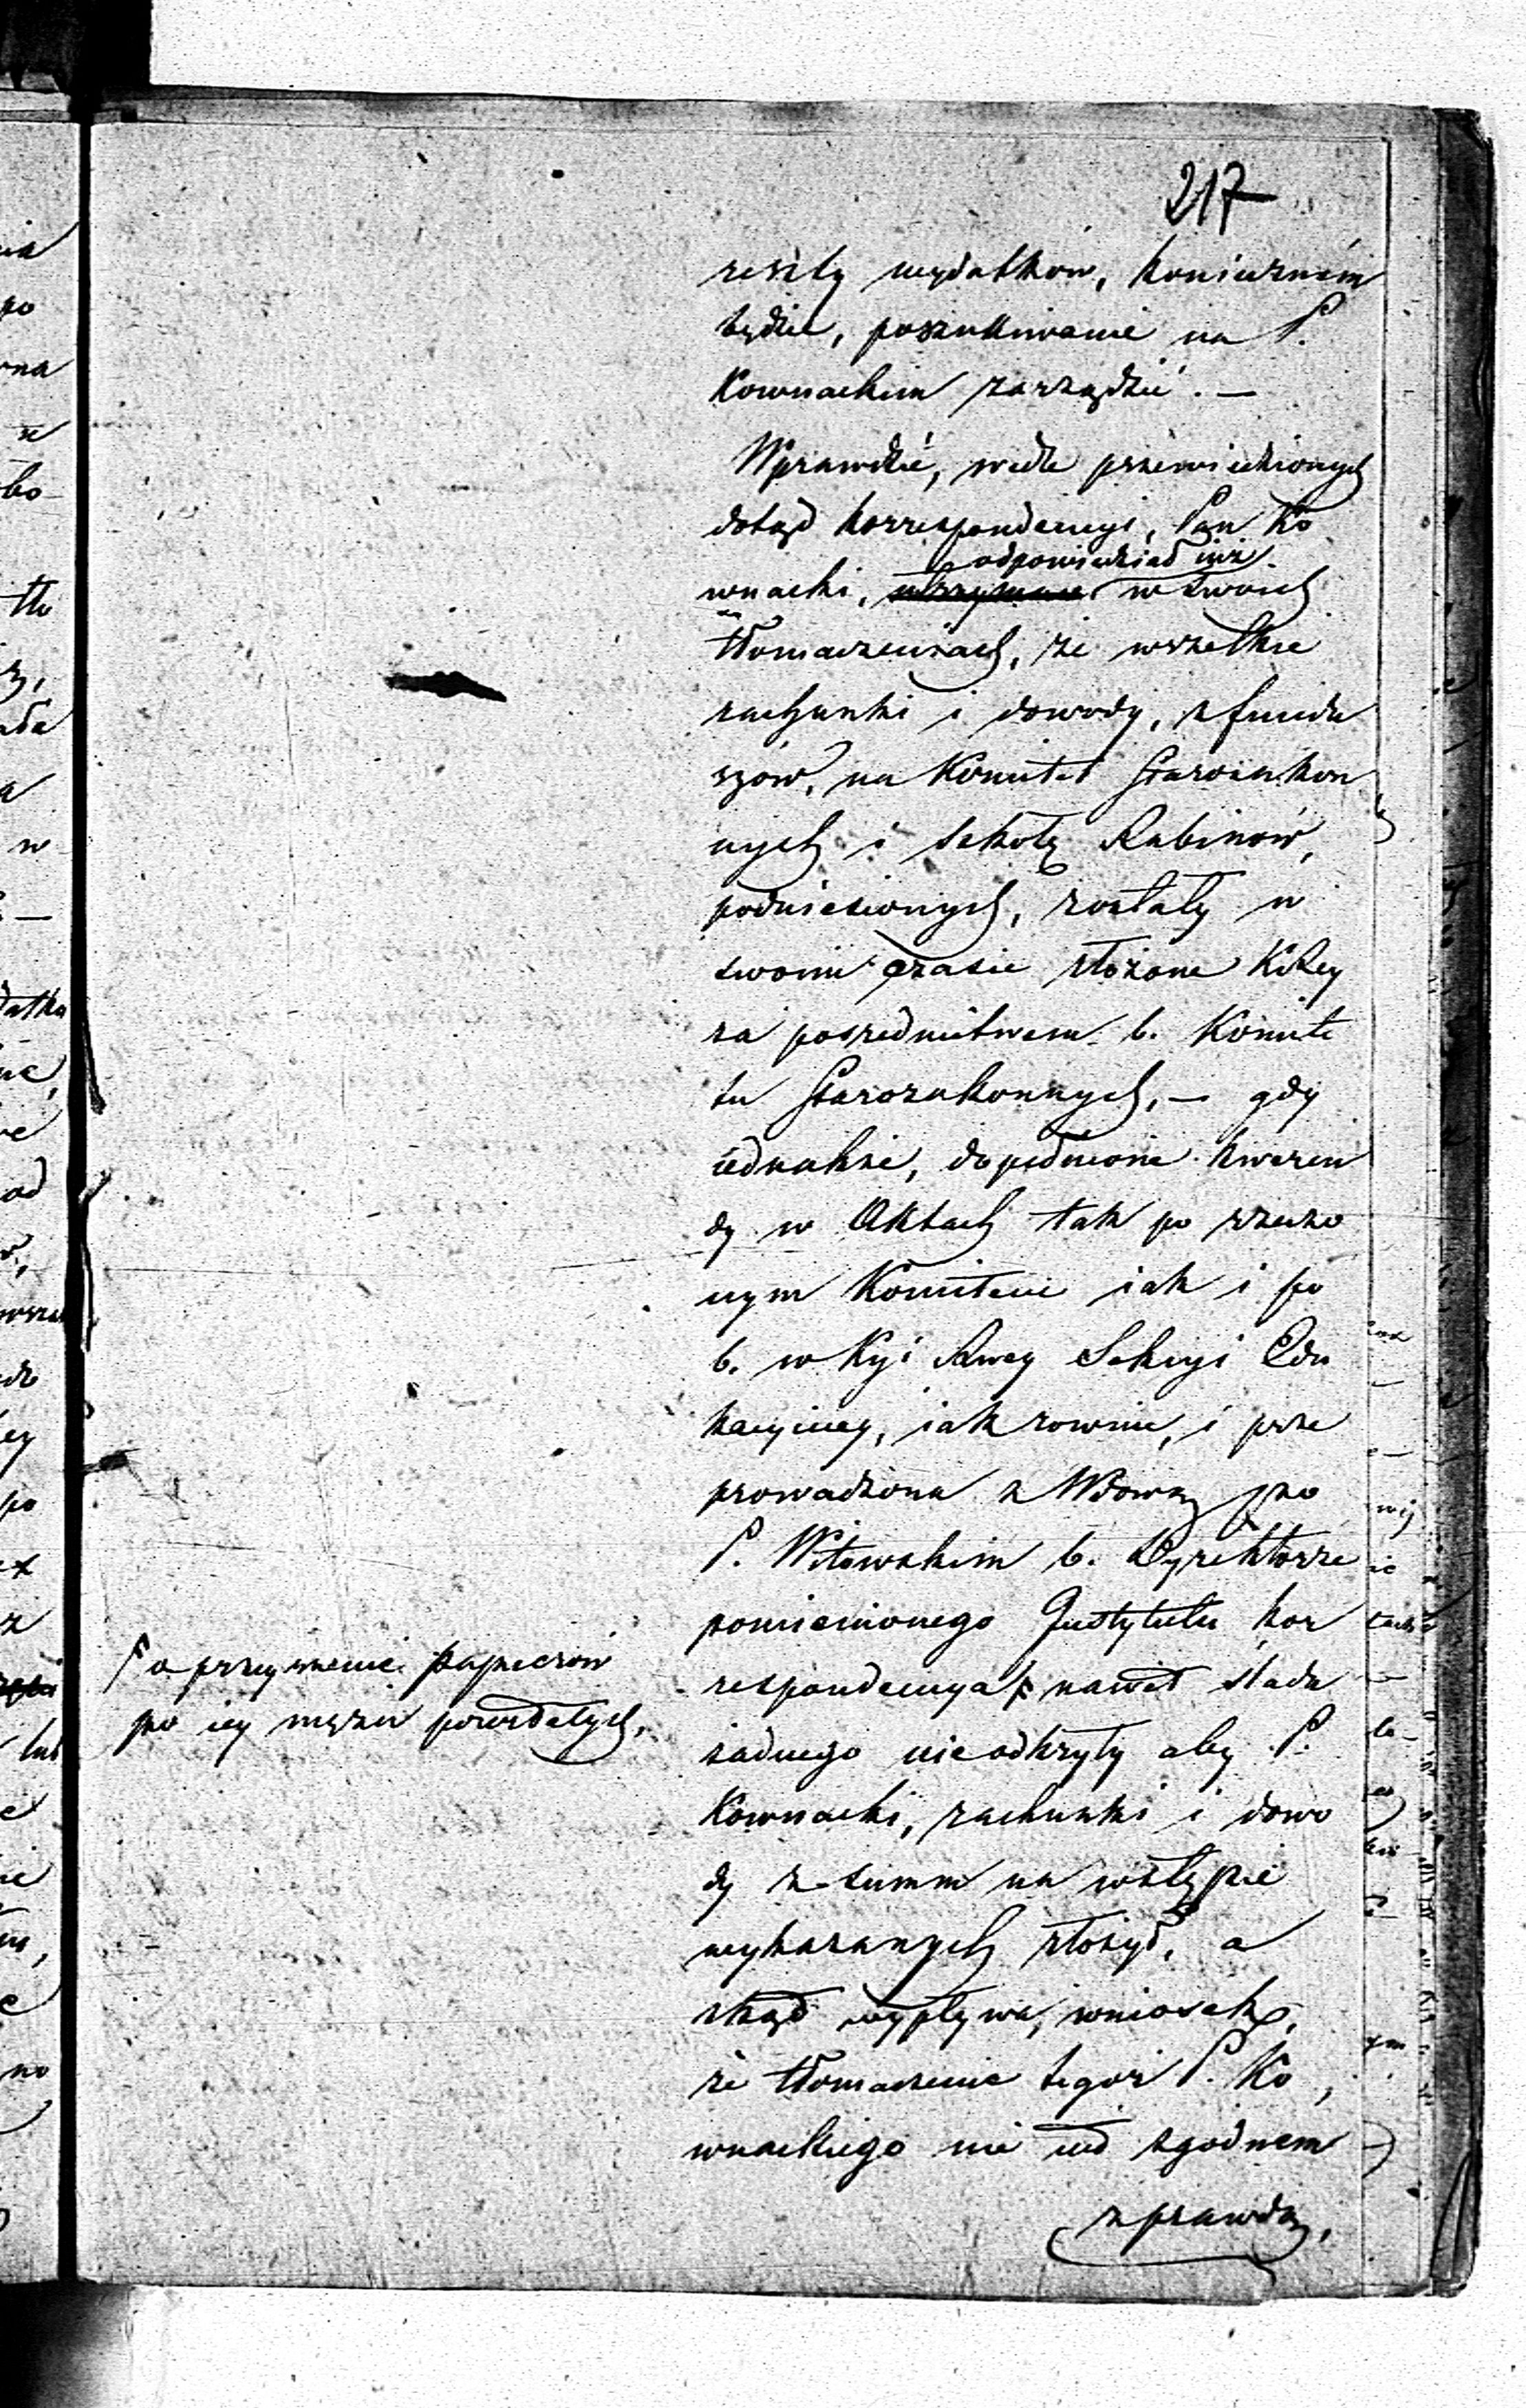 217
reszty wydatków, koniecznem
będzie, poszukiwanie na P.
Kownackim zarządzić. —
Wprawdzie, wedle przewiedzionych
dotąd korrespondencyi, Pan Ko
odpowiedział już
wnacki, utrzymuie w swoich
tłomaczeniach, że wszelkie
rachunki i dowody, z fundu
szów, na Komitet Starozakon
nych i Szkołę Rabinów,
podniesionych, zostały w
swoim czasie złożone KRey
za pośrednictwem b. Komite
tu Starozakonnych, — gdy
iednakże, dopełnione kweren
dy w Aktach tak po rzeczo
nym Komitecie iak i po
b. w Kyi Rwey Sekcyi Edu
kacyiney, iak rownie, i prze
prowadzona z Wdową po
P. Witowskim b. Dyrektorze
pomienionego Instytutu kor
respondencya F nawet śladu
żadnego nie odkryły aby P.
Kownacki, rachunki i dowo
dy z summ na wstępie
wykazanych złożył, a
ztąd wypływa, wniosek,
że tłomaczenie tegoż P. Ko
wnackiego nie iest zgodnem
z prawdą,
F o przyznanie papierów
po iey mężu pozostałych,